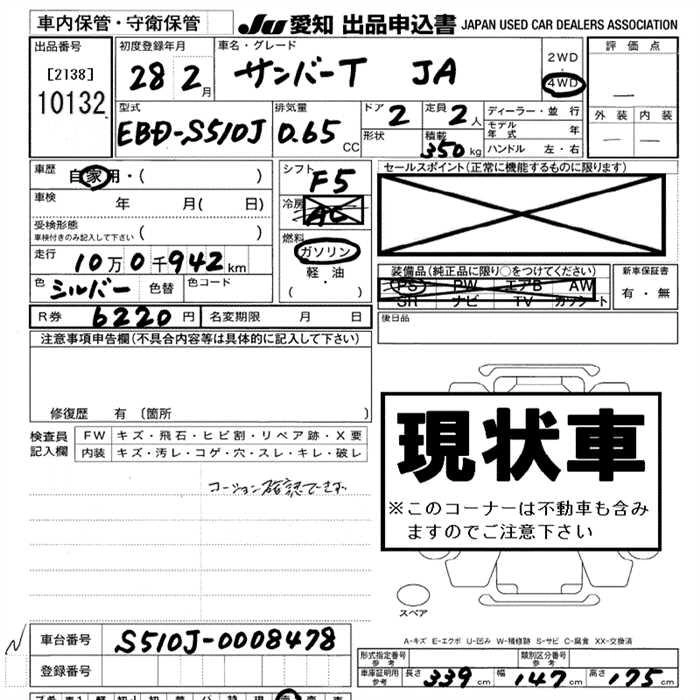 車内保管・守衛保管 JU 愛知 出品申込書 JAPAN USED CAR DEALERS ASSOCIATION
出品番号 [2138] 10132
初度登録年月 28 2月
車名・グレード サンバーT JA
2WD ・ 4WD
評価点 —
外装 内装
— —
型式 EBD-S510J
排気量 0.65 CC
ドア 2 定員 2人
形状 積載 350kg
ディーラー・並行
モデル年式 年
ハンドル 左・右
車歴 自家用・( )
車検 年 月( 日)
受検形態 車検付きのみ記入して下さい ( )
走行 10万0千942km
色 シルバー 色替 色コード
シフト F5
冷房 AC
燃料 ガソリン
軽・油
( ・ )
セールスポイント(正常に機能するものに限ります)
装備品(純正品に限り○をつけてください)
PS PW エアB AW
SR ナビ TV カセット
新車保証書
有・無
R券 6220円 名変期限 月 日
後日品
注意事項申告欄(不具合内容等は具体的に記入して下さい)
修復歴 有 〔箇所 〕
検査員記入欄
FW キズ・飛石・ヒビ割・リペア跡・X要
内装 キズ・汚レ・コゲ・穴・スレ・キレ・破レ
コーション確認できず
現状車
※このコーナーは不動車も含み
ますのでご注意下さい
スペア
A-キズ E-エクボ U-凹み W-補修跡 S-サビ C-腐食 XX-交換済
車台番号 S510J-0008478
登録番号
形式指定番号 参考
類別区分番号 参考
車庫証明用 参考 長さ 339cm 幅 147cm 高さ 175cm